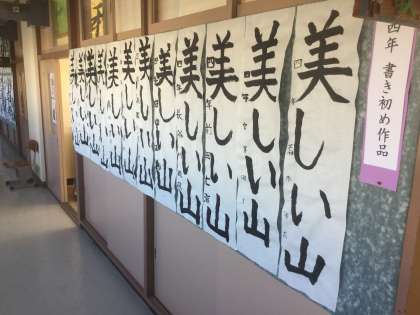 四年 書き初め作品
美しい山
美しい山
美しい山
美しい山
美しい山
美しい山
美しい山
美しい山
美しい山
美しい山
美しい山